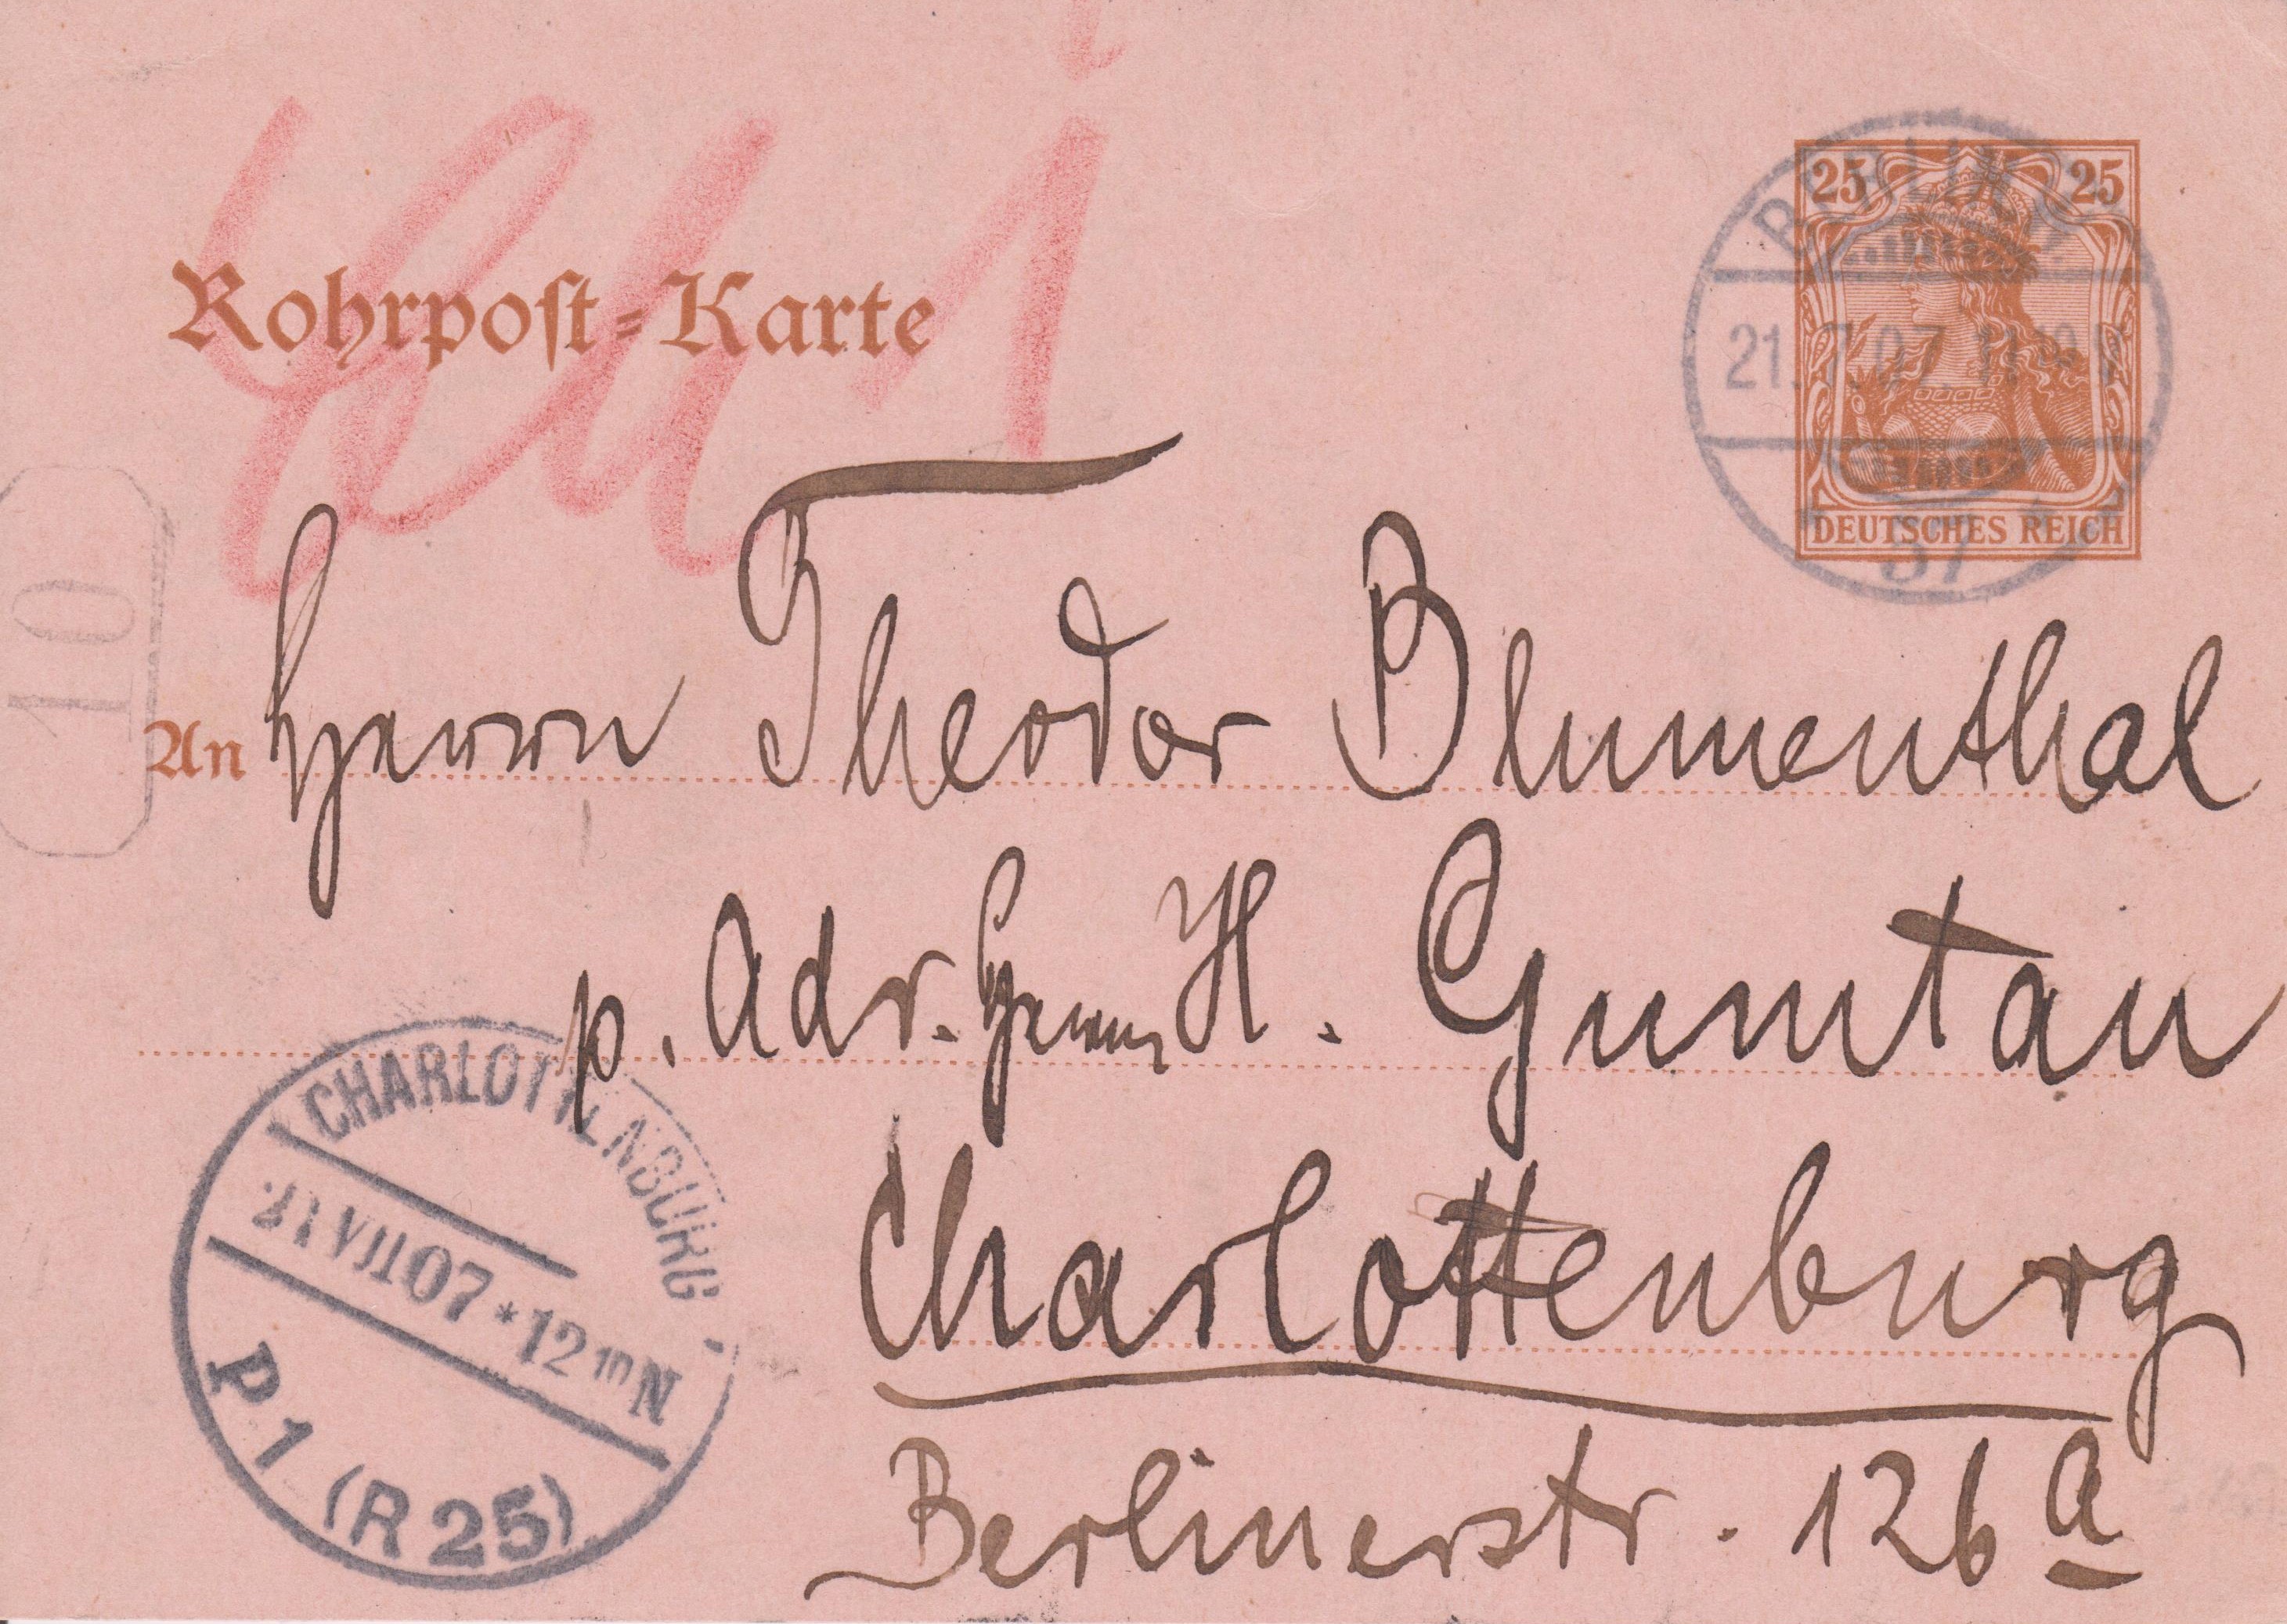 25 25
BERLIN
Rohrpost-Karte
21.7.07.11
DEUTSCHES REICH
57
10
An Herrn Theodor Blumenthal
p. Adr. Herrn H. Gumtau
CHARLOTTENBURG
Charlottenburg
21 VII 07 * 12 10 N
P 1 (R 25)
Berlinerstr. 126 a